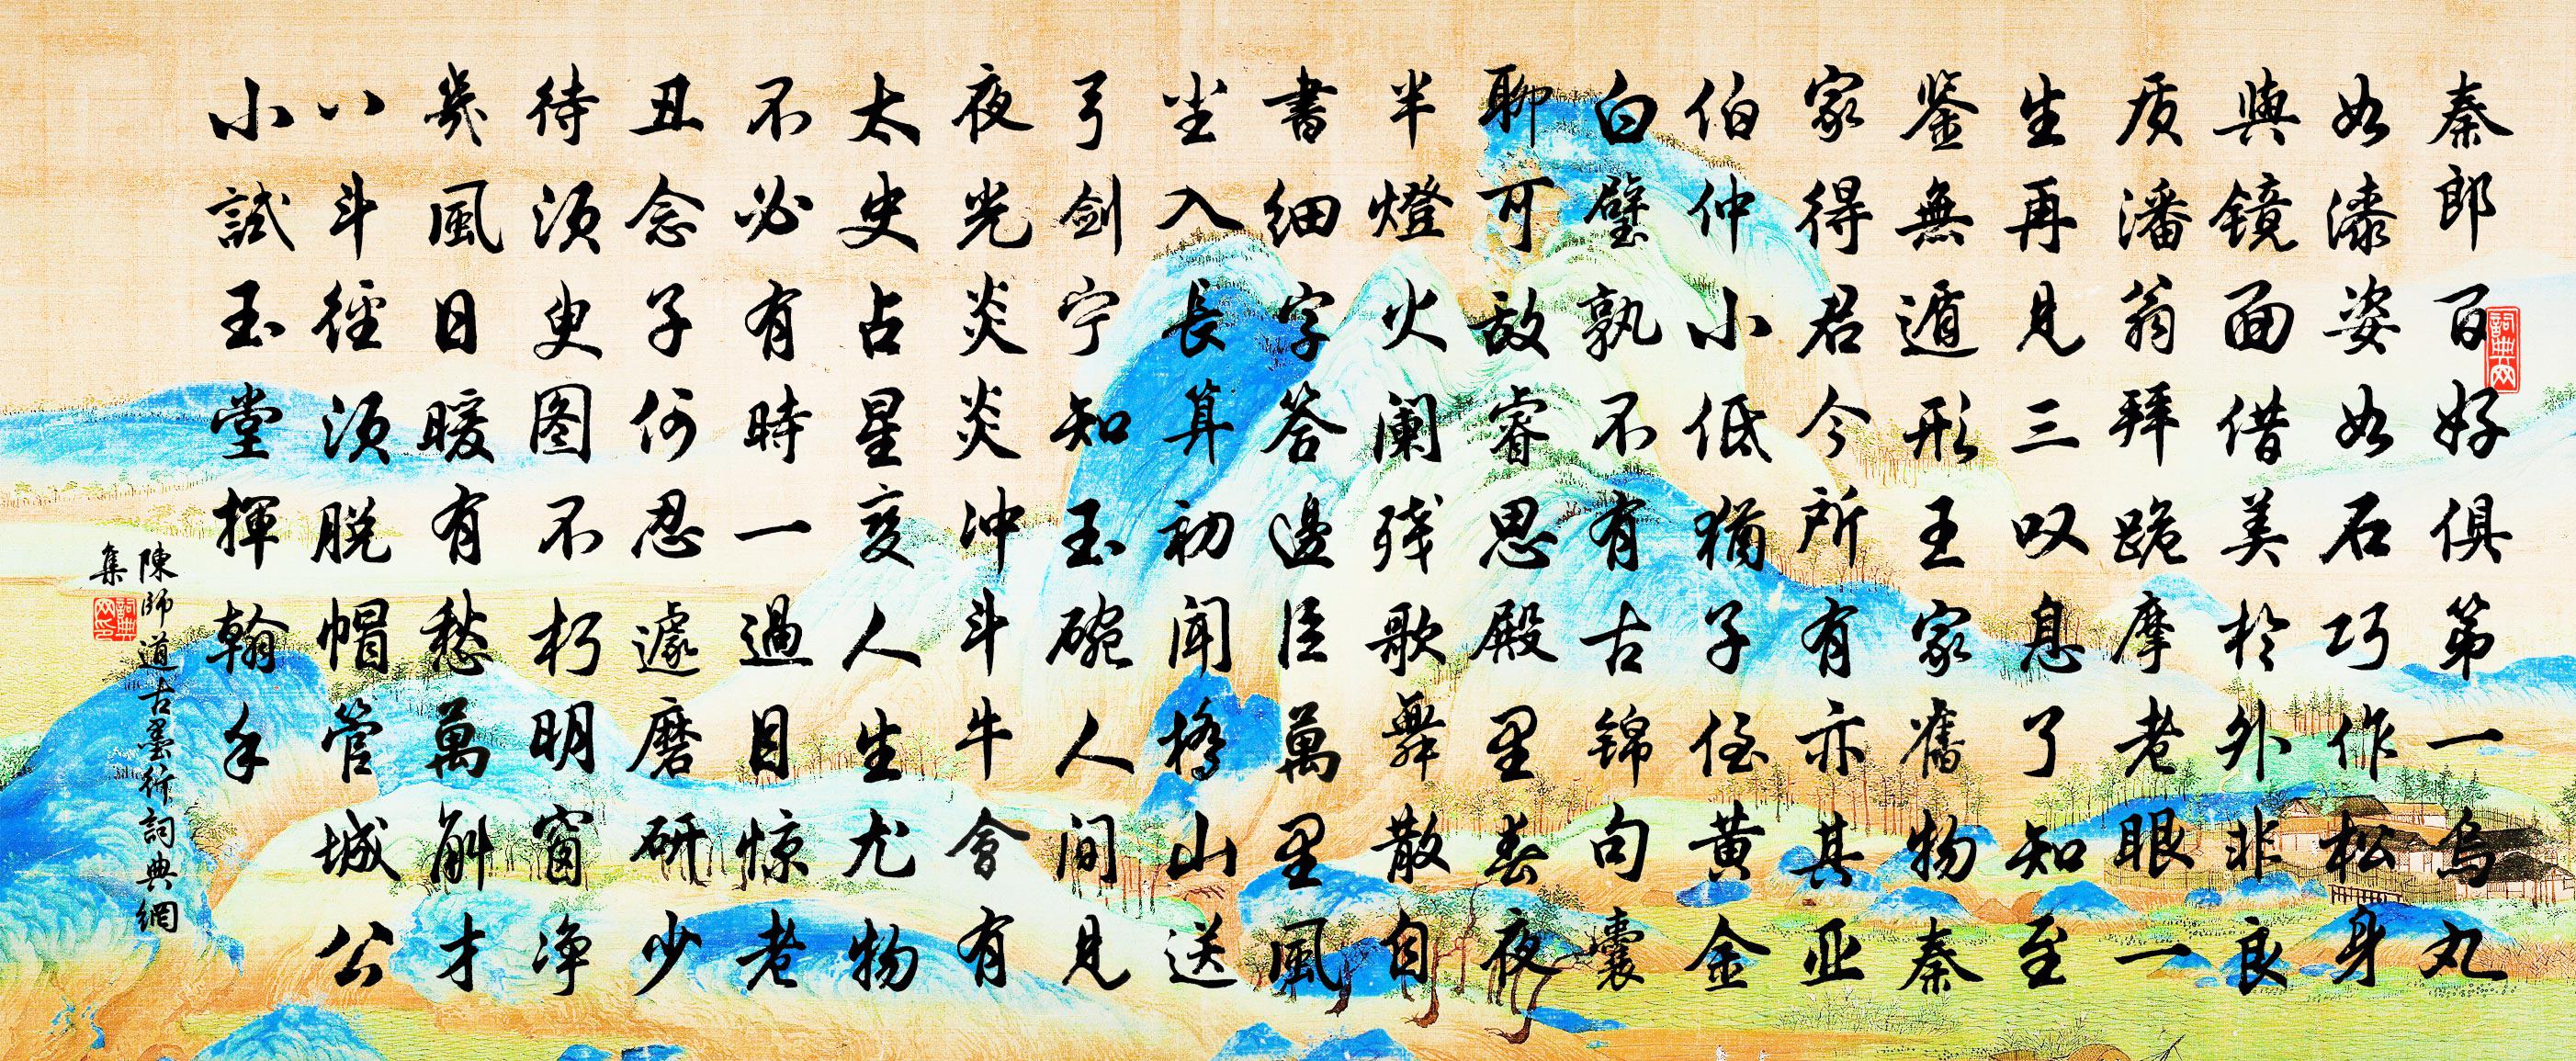 秦郎百好俱第一烏丸
如漆姿如石巧作松身
與镜面借美於外非良
质潘翁拜跪摩老眼一
生再見三叹息了知至
鉴無遁形王家舊物秦
家得君今所有亦其亚
伯仲小低猶子侄黄金
白璧孰不有古锦句囊
聊可敌睿思殿里春夜
半燈火阑残歌舞散自
書细字答邊臣萬里風
尘入長算初闻橋山送
弓剑宁知玉碗人間見
夜光炎炎冲斗牛會有
太史占星变人生尤物
不必有時一過目惊老
丑念子何忍遽磨研少
待须臾图不朽明窗净
几風日暖有愁萬斛才
八斗徑须脱帽管城公
小試玉堂揮翰手
陳師道古墨行詞典網
集
詞典网
詞典网印